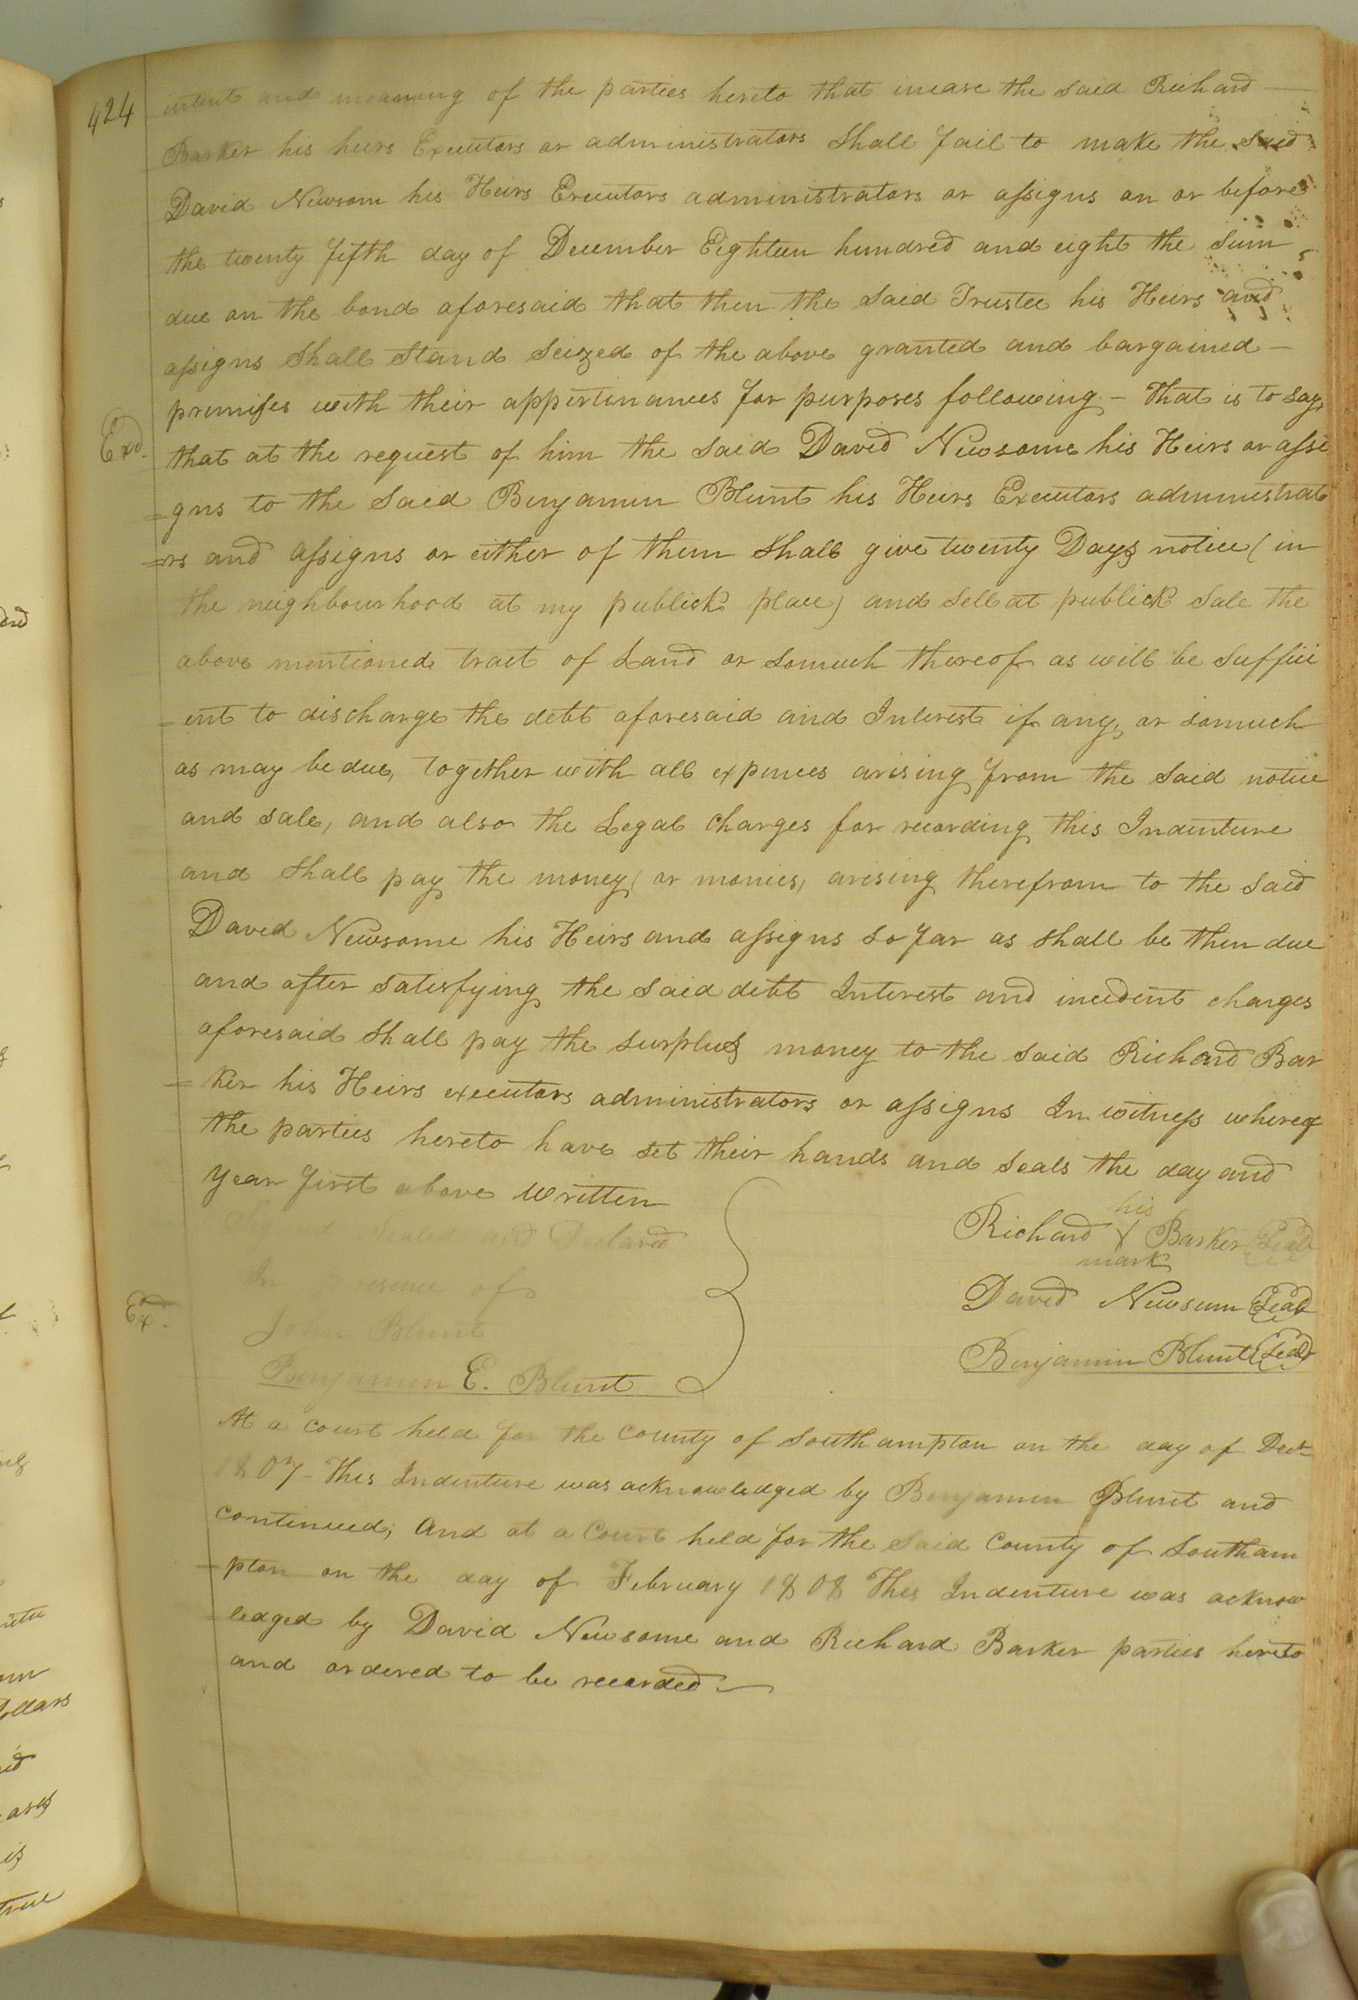 424
intent and meaning of the parties hereto that incase the said Richard —
Barker his heirs Executors or administrators Shall fail to make the said
David Newsom his Heirs Executors administrators or assigns on or before
the twenty fifth day of December Eighteen hundred and eight the Sum
due on the bond aforesaid that then the Said Trustee his Heirs and
assigns Shall Stand Seized of the above granted and bargained —
premises with their appertinances for purposes following - That is to say,
Exd.
that at the request of him the Said David Newsome his Heirs or assi
=gns to the Said Benjamin Blunt his Heirs Executors administrato
=rs and assigns or either of them Shall give twenty Days notice (in
the neighbourhood at my publick place) and Sell at publick Sale the
above mentioned tract of Land or Somuch thereof as will be Suffici
=ent to discharge the debt aforesaid and Interest if any, or somuch
as may be due, together with all expences arising from the Said notice
and sale, and also the Legal Charges for recording this Indenture
and Shall pay the money (or monies, arising therefrom to the Said
David Newsome his Heirs and assigns so far as shall be then due
and after satisfying the said debt Interest and incedent charges
aforesaid Shall pay the surplus money to the said Richard Bar
=ker his Heirs executors administrators or assigns In witness whereof
the parties hereto have set their hands and seals the day and
year first above written
Signed Sealed and Declared
In presence of
John Blunt
Benjamin E. Blunt
Ex.
his
Richard X Barker Seal
mark
David Newsum Seal
Benjamin Blunt Seal
At a court held for the County of Southampton on the day of Decr
1807 - This Indenture was acknowledged by Benjamin Blunt and
continued; And at a Court held for the said County of Southam
=pton on the day of February 1808 This Indenture was acknow
=ledged by David Newsome and Richard Barker parties hereto
and ordered to be recorded —